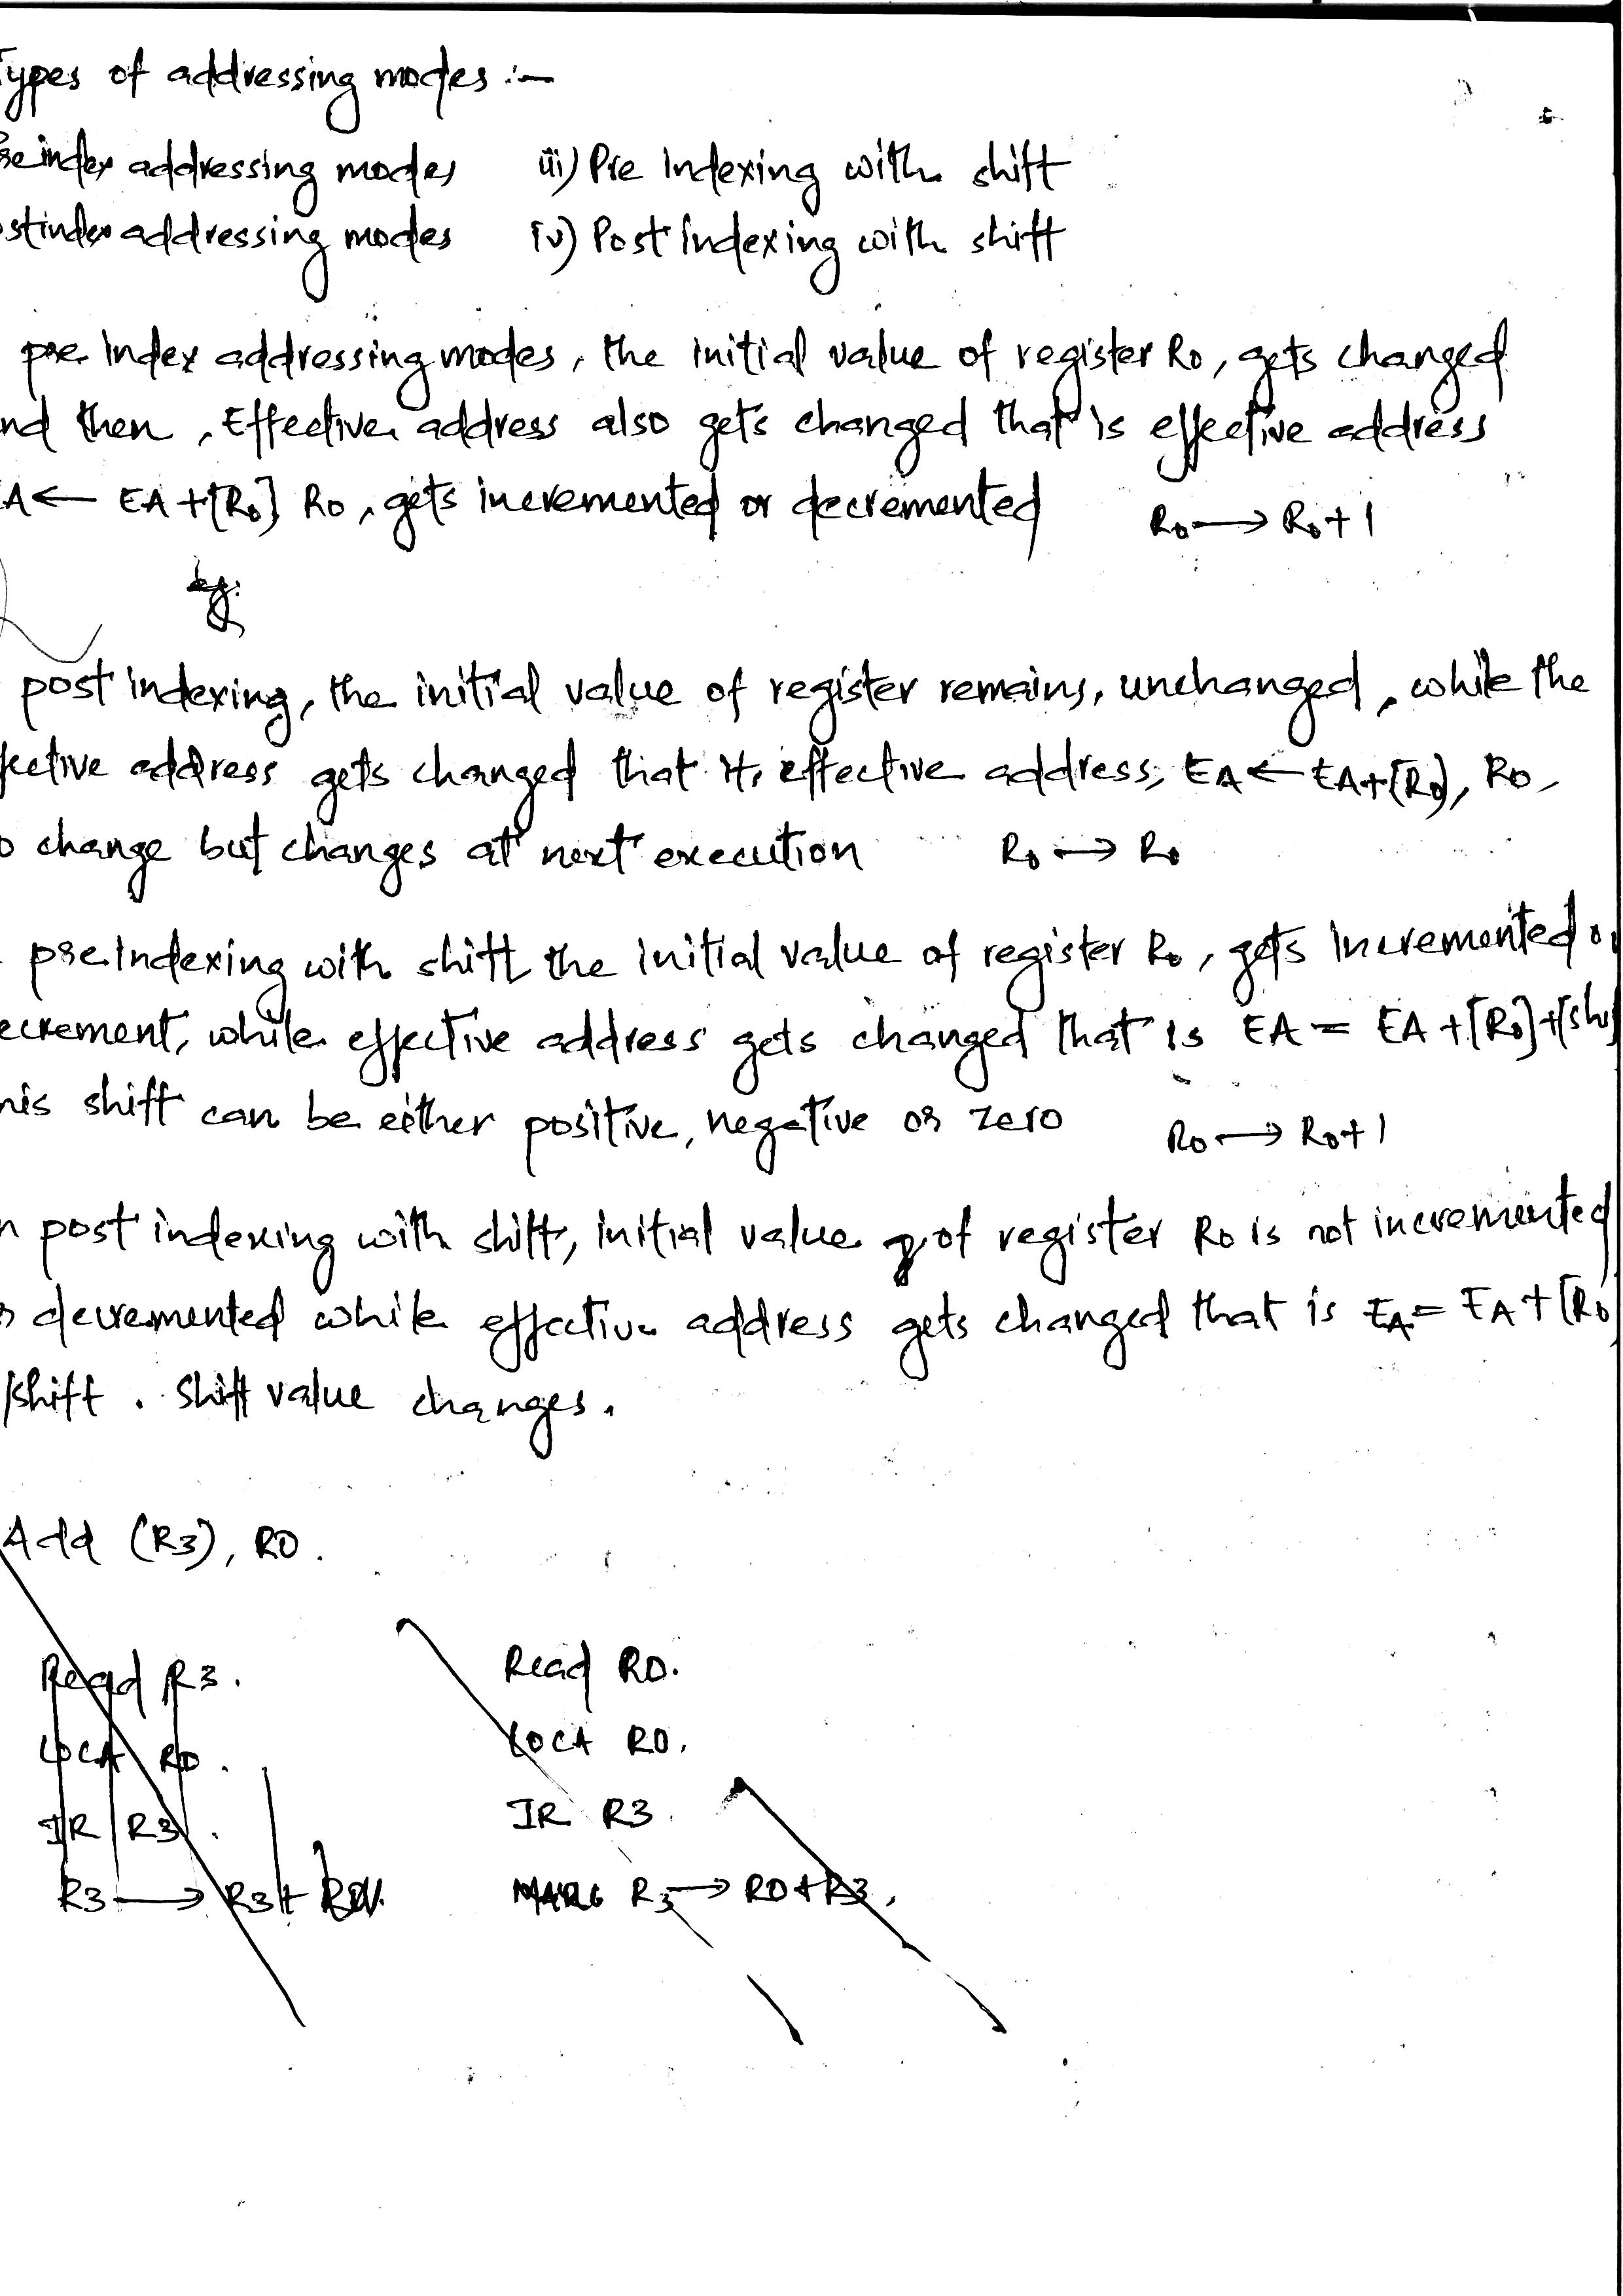 Types of addressing modes :-
Pre index addressing modes iii) Pre Indexing with shift
ost index addressing modes iv) Post indexing with shift
pre Index addressing modes, the initial value of register R0, gets changed
nd then, Effective address also gets changed that is effective address
EA ← EA + [R0] R0, gets incremented or decremented R0 → R0+1
eg:
post indexing, the initial value of register remains, unchanged, while the
fective address gets changed that is, effective address, EA ← EA+[R0], R0,
o change but changes at next execution R0 → R0
pre Indexing with shift the initial value of register R0, gets Incremented or
ecrement, while effective address gets changed that is EA = EA + [R0]+[shi
his shift can be either positive, negative or zero R0 → R0+1
n post indexing with shift, initial value of register R0 is not incremented
r decremented while effective address gets changed that is EA = EA + [R0
/shift . Shift value changes.
Add (R3), R0.
Read R3. Read R0.
LOCA R0. LOCA R0.
IR R3. IR R3.
R3 → R3+ R3 → R0+R3,